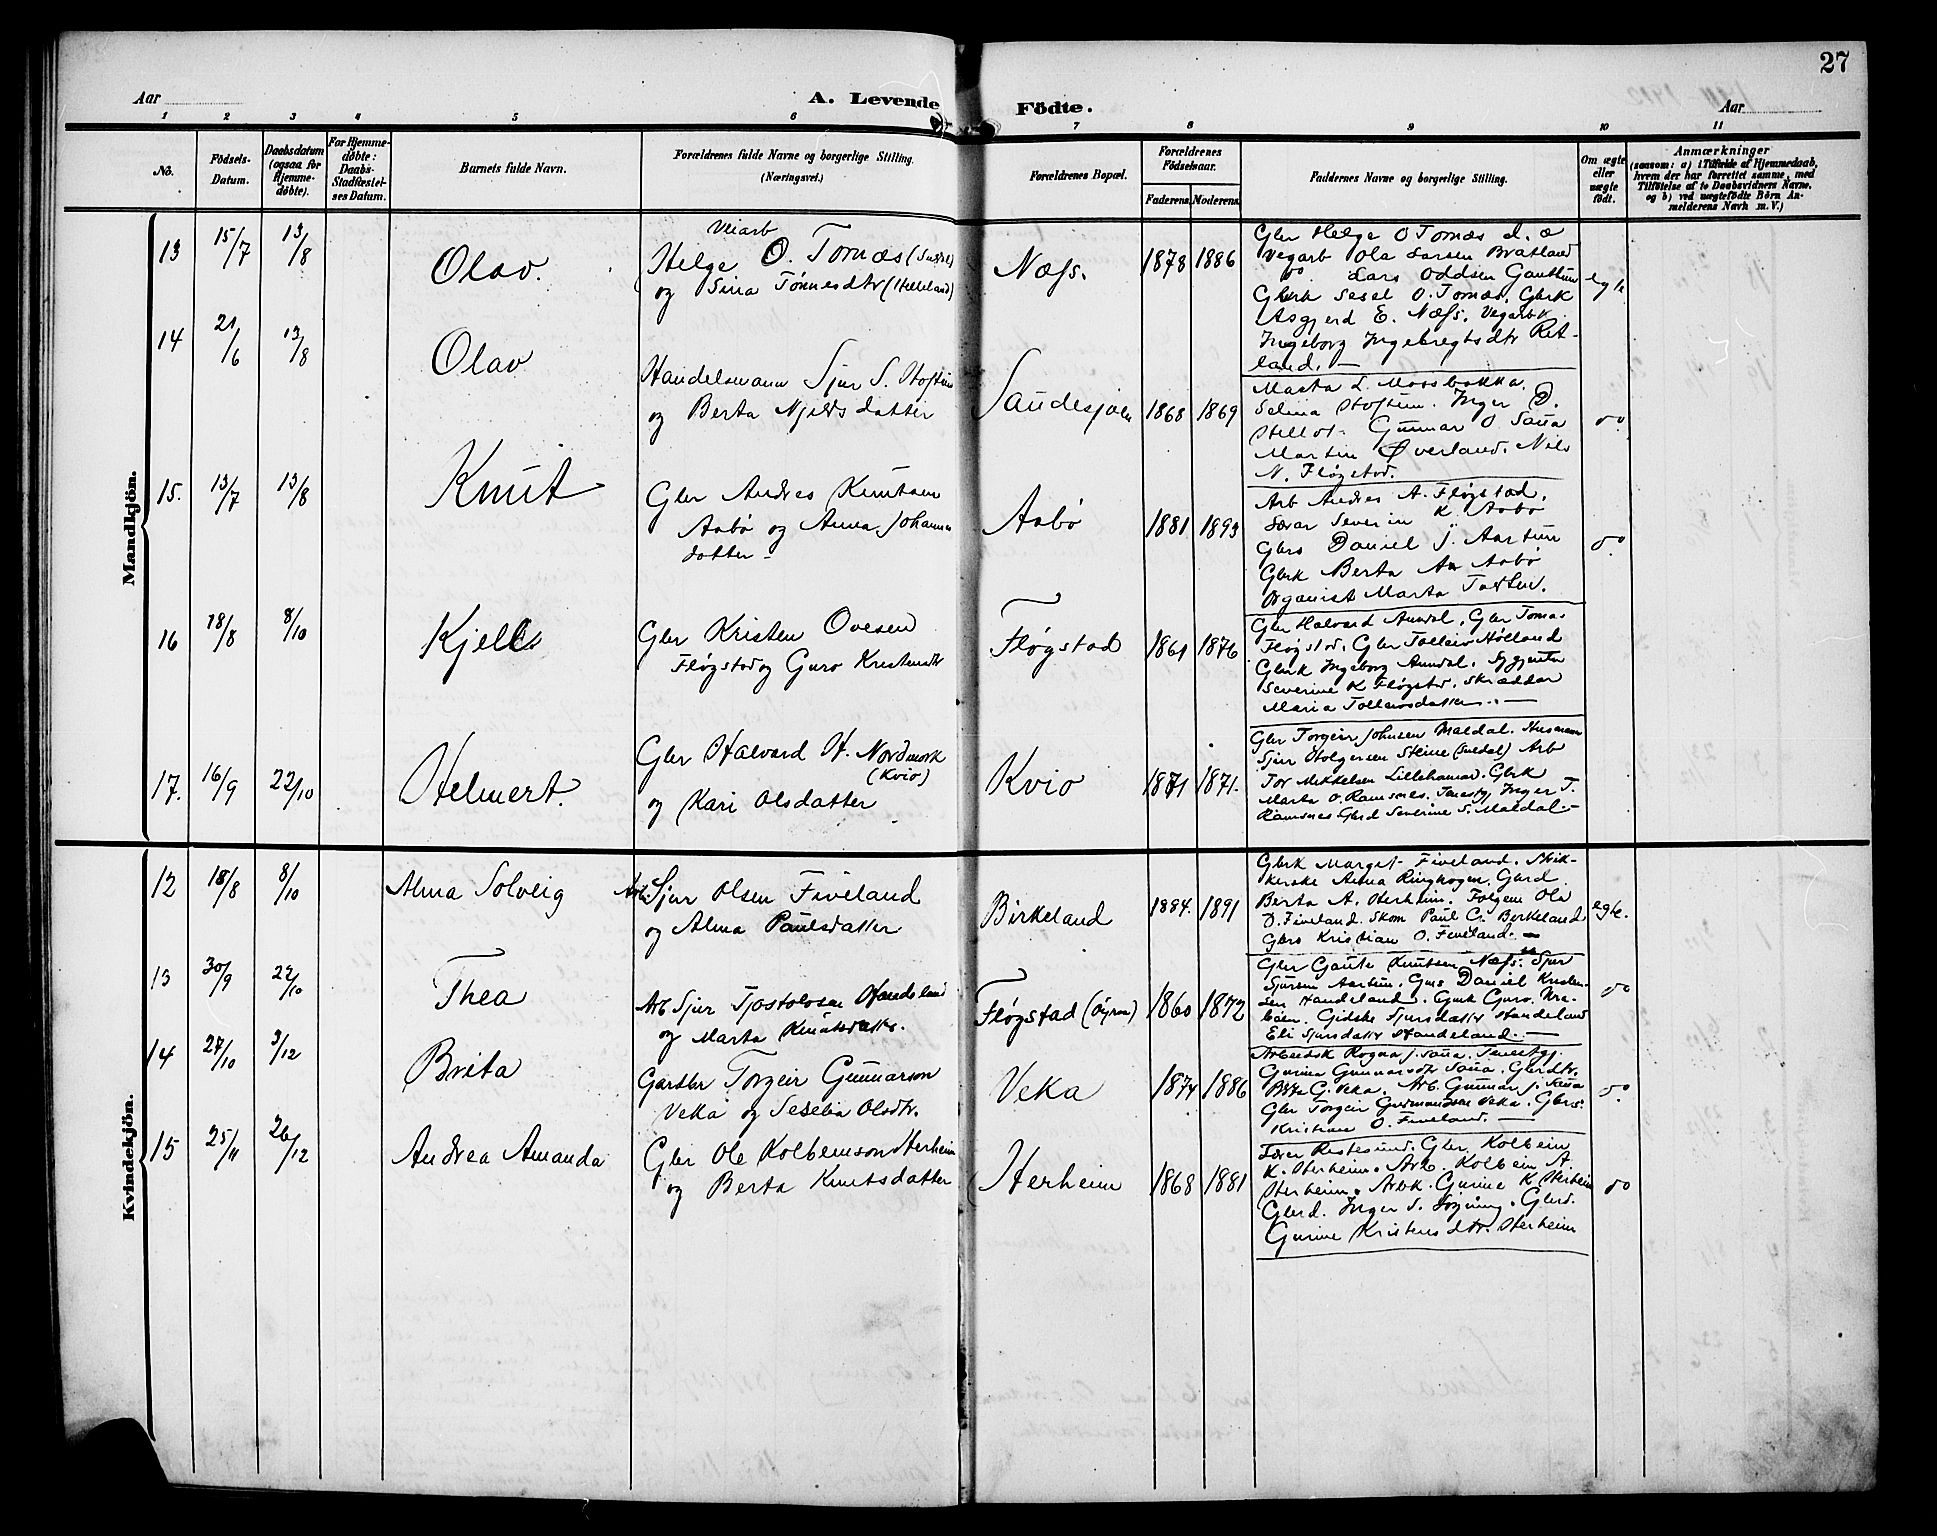 27
Aar
A. Levende Födte.
Aar
1 2 3 4 5 6 7 8 9 10 11
No.
Födsels-Datum.
Daabsdatum (ogsaa for Hjemme-døbte).
For Hjemme-døbte: Daabs-Stadfæstelses Datum.
Barnets fulde Navn.
Forældrenes fulde Navne og borgerlige Stilling.
(Næringsvei.)
Forældrenes Bopæl.
Forældrenes Födselsaar.
Faderens.
Moderens.
Faddernes Navne og borgerlige Stilling.
Om ægte eller uægte födt.
Anmærkninger
(saasom: a) i Tilfælde af Hjemmedaab,
hvem der har forrettet samme, med
Tilföielse af to Daabsvidners Navne,
og b) ved uægtefödte Börn An-
melderens Navn m. V.)
Mandkjön.
13 15/7 13/8 Olav.
Veiarb
Helge O. Tomæs
og Sina Tønnesdtr (Helleland)
Næss. 1878 1886
Gbr Helge O Tomæs d. æ
Vegarb Ola Larsen Bratland
do Lars Oddsen Gauthun
Gbrk Sesel O. Tomæs, Gbrk
Asgjerd E. Næss, Vegarbk
Ingeborg Ingebregtsdtr Ret-
land. —
egte
14 21/6 13/8 Olav
Handelsmann Sjur S. Hoftun
og Berta Njeldsdatter
Saudesjøen 1868 1869
Marta L. Mosbakka,
Selina Hoftun. Inger D.
Gunnar O. Saua
Martin Øverland. Nils
N. Fløgstad.
do
15. 13/7 13/8 Knut
Gbr Andres Knutsen
Aabø og Anna Johanna
datter —
Aabø 1881 1893
Arb Andres A. Fløgstad,
Severin K. Aabø
Daniel J. Aartun
Gbrk Berta Aabø
Organist Marta
do
16 18/8 8/10 Kjell
Gbr Kristen Ovesen
Fløgstad og Guro Kristensdtr
Fløgstad 1861 1876
Gbr Halvard Amdal, Gbr Tomas
Fløgstad. Gbr Tolleiv Hølland
Gbrk Ingeborg Amdal. Sypjente
Severine K Fløgstad. Skrædder
Maria Tolleivsdatter. —
17. 16/9 22/10 Helmert.
Gbr Halvard H. Nordmork
(Kvio)
og Kari Olsdatter
Kvio 1871 1871.
Gbr Torgeir Johnsen Maldal. Husmann
Sjur Holgersen Steine (Suldal) Arb
Tor Mikkelsen Lillehamar. Gbrk
Marta O. Ramsnes. Tenestgj Inger T.
Ramsnes Gbrd Severine S. Maldal. —
Kvindekjön.
12 18/8 8/10 Alma Solveig
Arb. Sjur Olsen Fiveland
og Alma Paulsdatter
Birkeland 1884. 1891
Gbrk Margit Fiveland.
Anna Ringhogen, Gbrd
Berta A. Herheim. Ola
D. Fiveland. Skom Paul G. Birkeland
Gbrs Kristian O. Fiveland. —
egte.
13 30/9 22/10 Thea
Arb Sjur Tjostolvsen Handeland
og Marta Knutsdatter.
Fløgstad (Øyna) 1860 1872
Gbr Gaute Knutsen Næss. Sjur
Sjursen Aartun. Gbrs Daniel Kristen-
sen Handeland. Gbrk Guro
Gidske Sjursdatter Handeland
Eli Sjursdatter Handeland. —
do
14 27/10 3/12 Brita
Gardbr Torgeir Gunnarson
Veka og Seselia Olsdtr.
Veka 1874 1886
Arbeidsk Ragna J. Saua. Tenestgj.
Gurina Gunnarsdtr Saua. Gbrdtr.
Brita G. Veka. Arb. Gunnar J. Saua
Gbr Torgeir Gudmundsen Veka. Gbrs.
Kristian O. Fiveland. —
do
15 25/11 26/12 Andrea Amanda
Gbr Ole Kolbeinson Herheim
og Berta Knutsdatter
Herheim 1868 1881
Lærer Gbr Kolbein
K. Herheim. Arb. Kolbein A.
Herheim. Arbk. Gurine K Herheim
Gbrd. Inger S. Gbrd.
Gurine Kristensdtr. Herheim
do